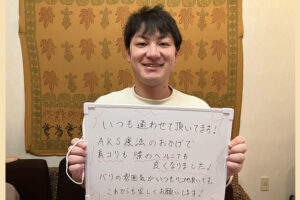 いつも通わせて頂いてます!
AKS療法のおかげで
肩コリも腰のヘルニアも
良くなりました♪
バリの雰囲気がいつも心地良いです。
これからも宜しくお願いします!